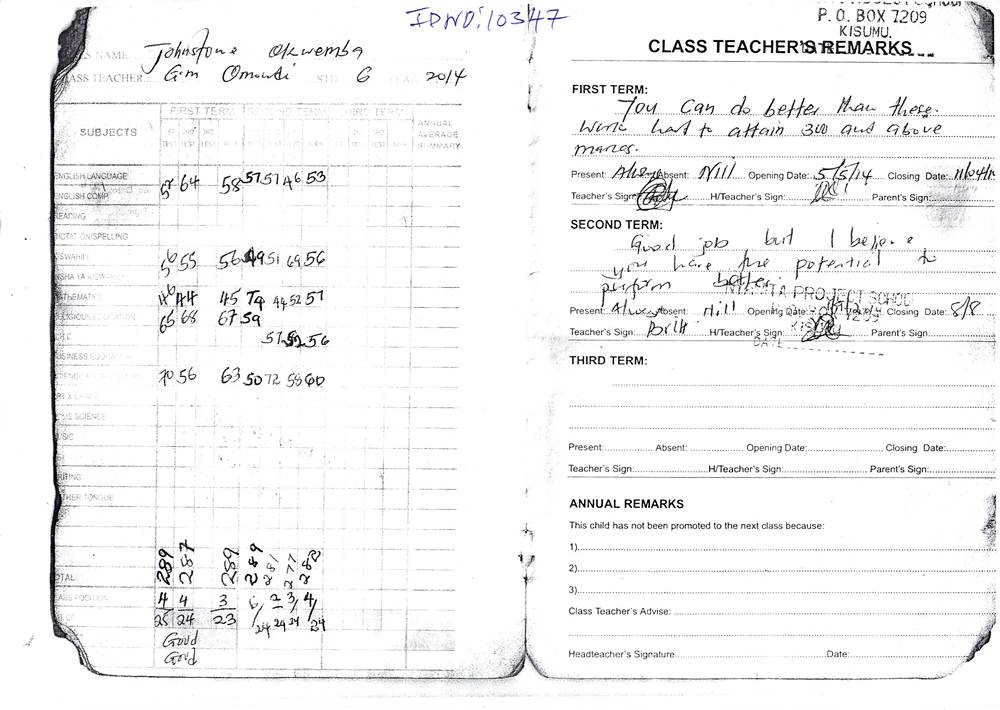 IDNO:10347
NAME Johnstone Okwemba
CLASS TEACHER G.m Omondi STD 6 YEAR 2014
SUBJECTS
FIRST TERM
SECOND TERM
THIRD TERM
ANNUAL
AVERAGE
SUMMARY
ENGLISH LANGUAGE
64 58 57 51 46 53
ENGLISH COMP
READING
DICTATION/SPELLING
KISWAHILI
56 55 56 49 51 69 56
INSHA YA KISWAHILI
MATHEMATICS
46 44 45 79 44 52 57
RELIGIOUS EDUCATION
65 68 67 59
57 52 56
BUSINESS EDUCATION
SCIENCE
70 56 63 50 72 58 60
ART & CRAFT
HOME SCIENCE
MUSIC
WRITING
MOTHER TONGUE
TOTAL
289 287 289 289 281 277 282
CLASS POSITION
4 4 3 6 12 3/ 4/
25 24 23 24 24 24 24
Good
Good
P. O. BOX 7209
KISUMU.
CLASS TEACHER'S REMARKS
FIRST TERM:
You can do better than these.
Work hard to attain 300 and above
marks.
Present: Always Absent: Nill Opening Date: 5/5/14 Closing Date: 11/04/14
Teacher's Sign: H/Teacher's Sign: Parent's Sign:
SECOND TERM:
Good job but I believe
you have the potential to
perform better
PROJECT SCHOOL
Present: Always Absent: Nill Opening Date: Closing Date: 8/8
7209
Teacher's Sign: H/Teacher's Sign: Parent's Sign:
DATE
THIRD TERM:
Present: Absent: Opening Date: Closing Date:
Teacher's Sign: H/Teacher's Sign: Parent's Sign:
ANNUAL REMARKS
This child has not been promoted to the next class because:
1)
2)
3)
Class Teacher's Advise:
Headteacher's Signature Date: